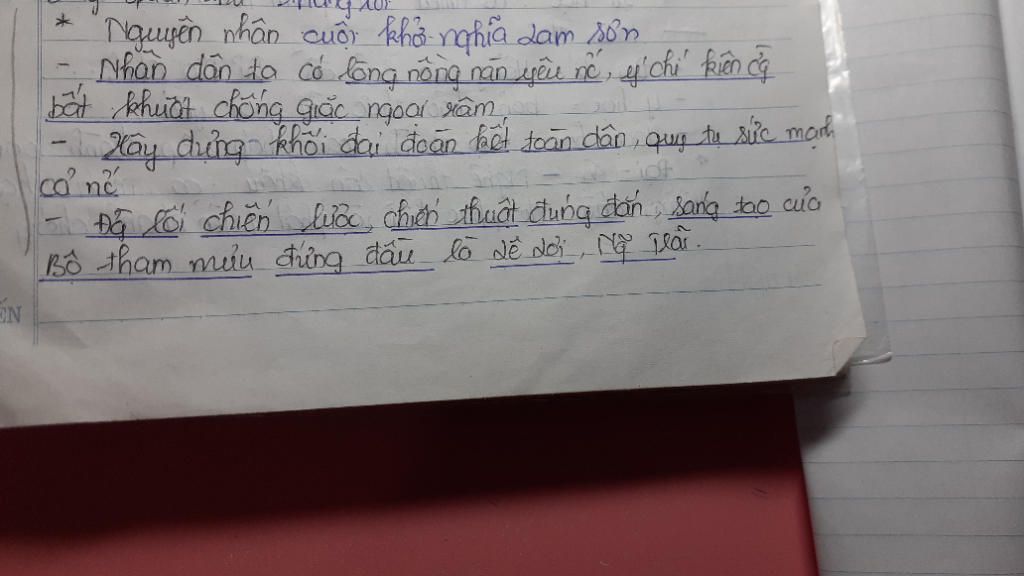 * Nguyên nhân cuội khởi nghĩa Lam Sơn
- Nhân dân ta có lòng nồng nàn yêu nc, ý chí kiên cg
bất khuất chống giặc ngoại xâm
- Xây dựng khối đại đoàn kết toàn dân, quy tụ sức mạnh
cả nc
- Đg lối chiến lược, chiến thuật đúng đắn, sáng tạo của
Bộ tham mưu đứng đầu là Lê Lợi, Ng Trãi.
ẾN